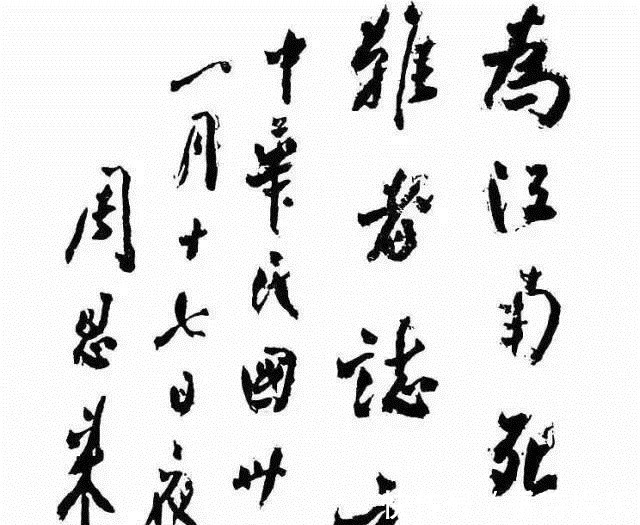 為江南死
難者誌
中華民國卅
一月十七日夜
周恩来